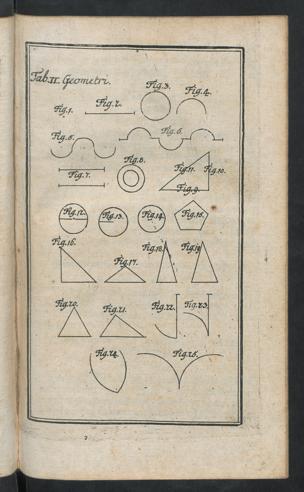 Tab. II. Geometri.
Fig. 1. Fig. 2. Fig. 3. Fig. 4.
Fig. 5. Fig. 6.
Fig. 7. Fig. 8. Fig. 9. Fig. 10. Fig. 11.
Fig. 12. Fig. 13. Fig. 14. Fig. 15.
Fig. 16. Fig. 17. Fig. 18. Fig. 19.
Fig. 20. Fig. 21. Fig. 22. Fig. 23.
Fig. 24. Fig. 25.